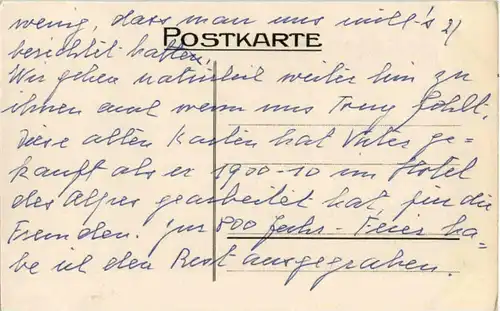 wenig, dass man uns nicht's 2/
POSTKARTE
berichtet hatten.
Wir gehen natürlich weiter hin zu
ihnen auch wenn uns Trny fehlt.
Diese alten Karten hat Vater ge-
kauft als er 1900-10 im Hotel
des Alpes gearbeitet hat, für die
Fremden. Zur 800 Jahr-Feier ha-
be ich den Rest ausgegraben.